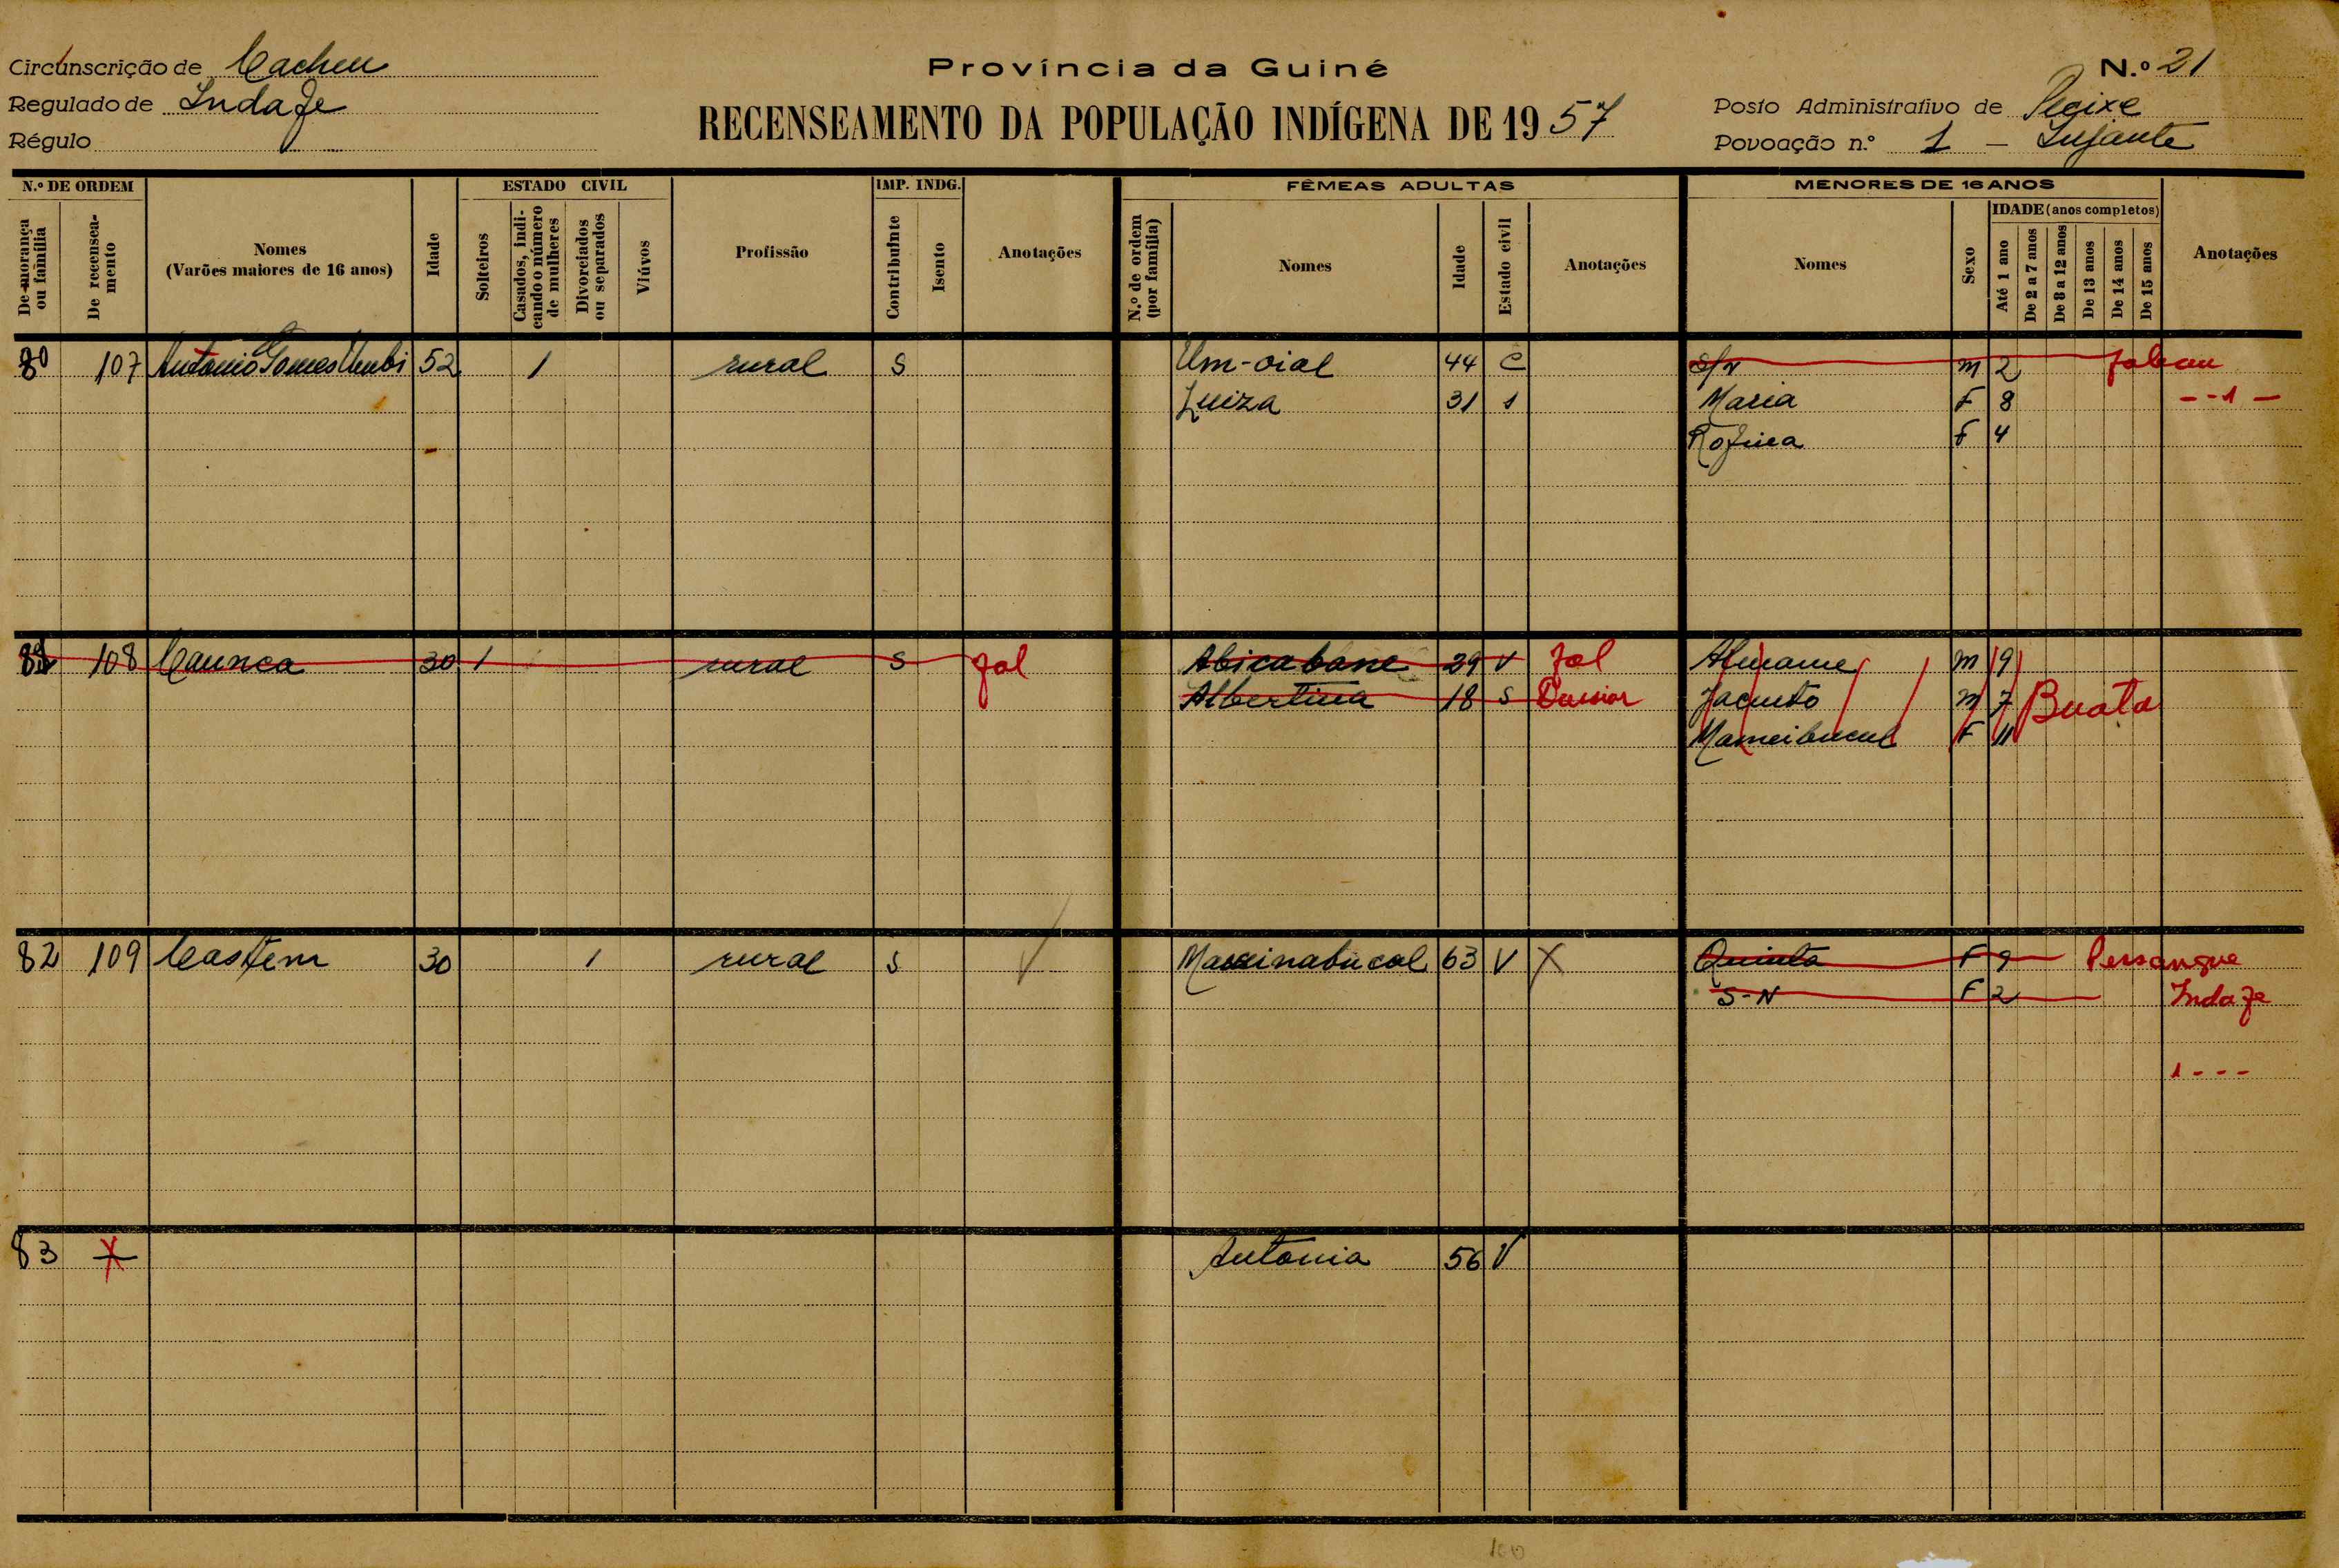 Circunscrição de Cacheu
Província da Guiné
N.º 21
Regulado de Indafe
RECENSEAMENTO DA POPULAÇÃO INDÍGENA DE 1957
Posto Administrativo de Pecixe
Régulo
Povoação n.º 1 –
N.º DE ORDEM
ESTADO CIVIL
IMP. INDG.
FÊMEAS ADULTAS
MENORES DE 16 ANOS
De morança ou família
De recenseamento
Nomes (Varões maiores de 16 anos)
Idade
Solteiros
Casados, indicando o número de mulheres
Divorciados ou separados
Viúvos
Profissão
Contribuinte
Isento
Anotações
N.º de ordem (por família)
Nomes
Idade
Estado civil
Anotações
Nomes
Sexo
IDADE (anos completos)
Até 1 ano
De 2 a 7 anos
De 8 a 12 anos
De 13 anos
De 14 anos
De 15 anos
Anotações
80 107 Antonio Gomes 52 1 rural S Um-oial 44 C S/N M 2
Luiza 31 S Maria F 8 - - 1 -
Rofina F 4
108 Caunca 30 1 rural S Jol Abicabane 29 V Jol M 9
Albertina 18 S Jacinto M 7 Buota
F 11
82 109 Castem 30 1 rural S V 63 V X Quinta F 9 Persangue
S-N F 2 Indafe
1 - - -
83 X Antonia 56 V
100